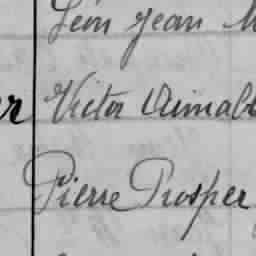 Léon Jean
Victor Aimabl
Pierre Prosper